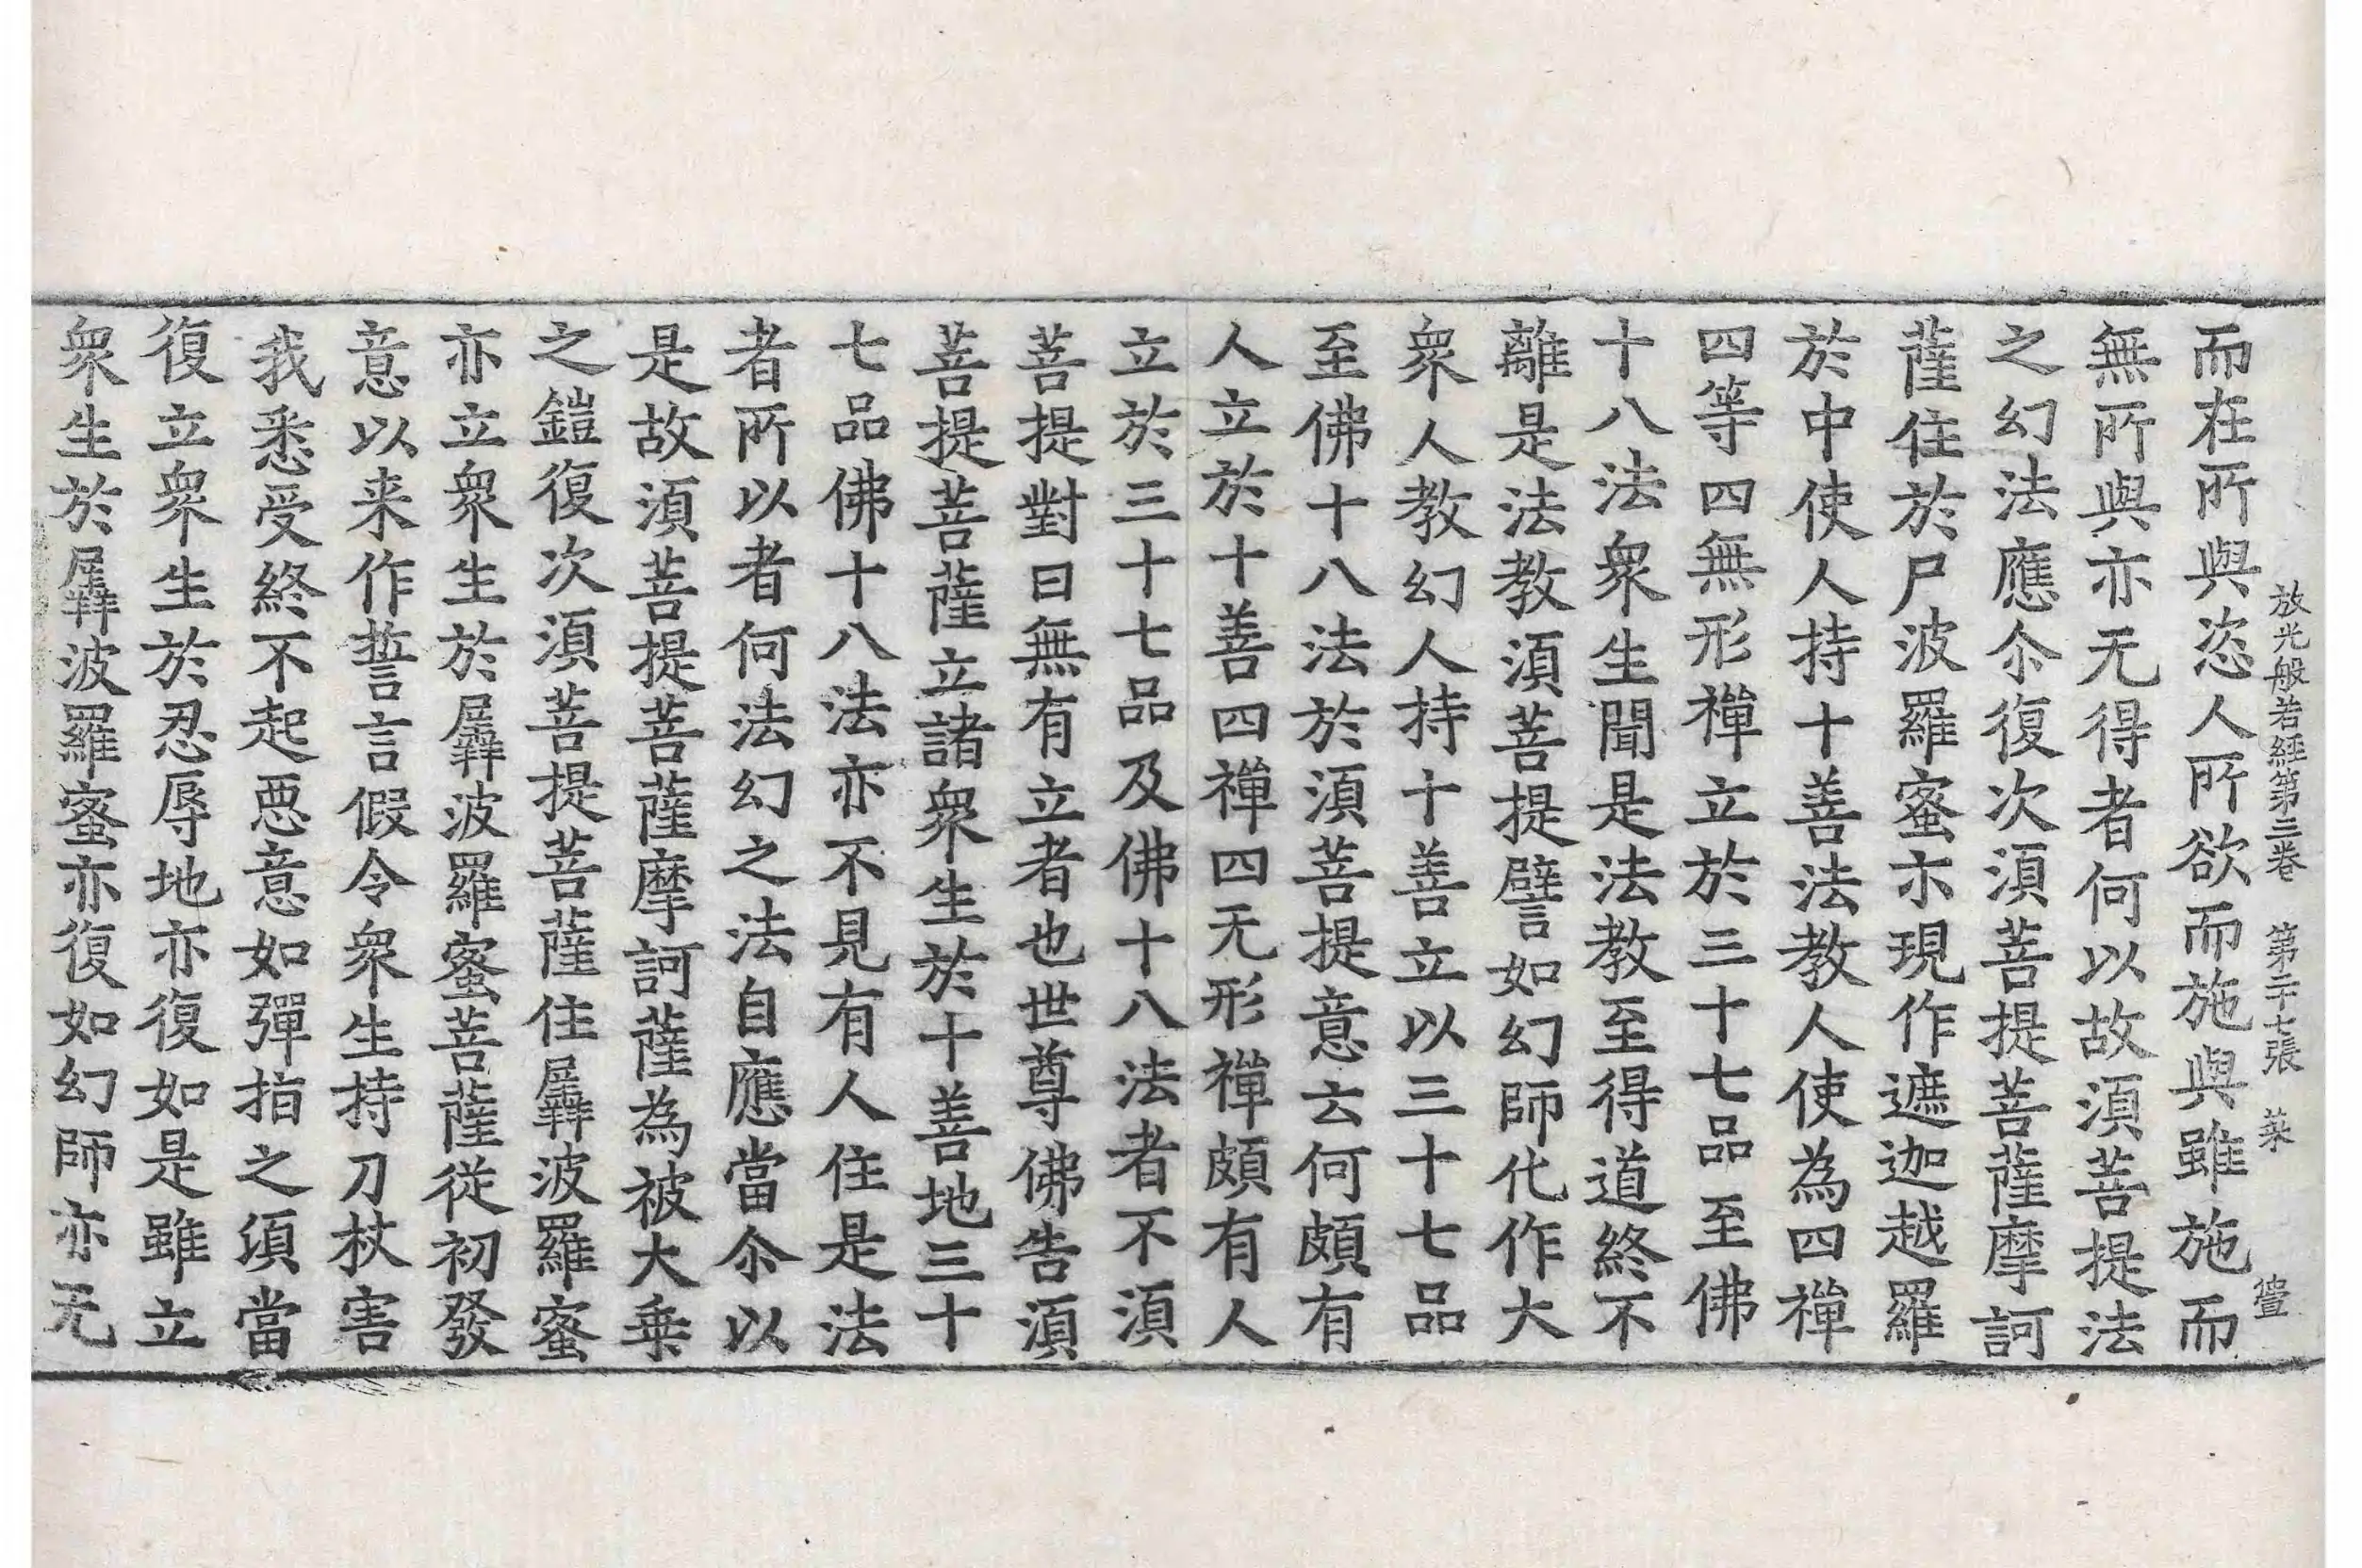 放光般若經第三卷 第二十七張 菜 
而在所與恣人所欲而施與雖施而
無所與亦无得者何以故湏菩提法
之幻法應尒復次湏菩提菩薩摩訶
薩住於尸波羅蜜亦現作遮迦越羅
於中使人持十善法教人使為四禪
四等四無形禪立於三十七品至佛
十八法衆生聞是法教至得道終不
離是法教湏菩提譬如幻師化作大
衆人教幻人持十善立以三十七品
至佛十八法於湏菩提意云何頗有
人立於十善四禪四无形禪頗有人
立於三十七品及佛十八法者不湏
菩提對曰無有立者也世尊佛告湏
菩提菩薩立諸衆生於十善地三十
七品佛十八法亦不見有人住是法
者所以者何法幻之法自應當尒以
是故湏菩提菩薩摩訶薩為被大乗
之鎧復次湏菩提菩薩住羼波羅蜜
亦立衆生於羼波羅蜜菩薩從初發
意以来作誓言假令衆生持刀杖害
我悉受終不起惡意如彈指之湏當
復立衆生於忍辱地亦復如是雖立
衆生於羼波羅蜜亦復如幻師亦无